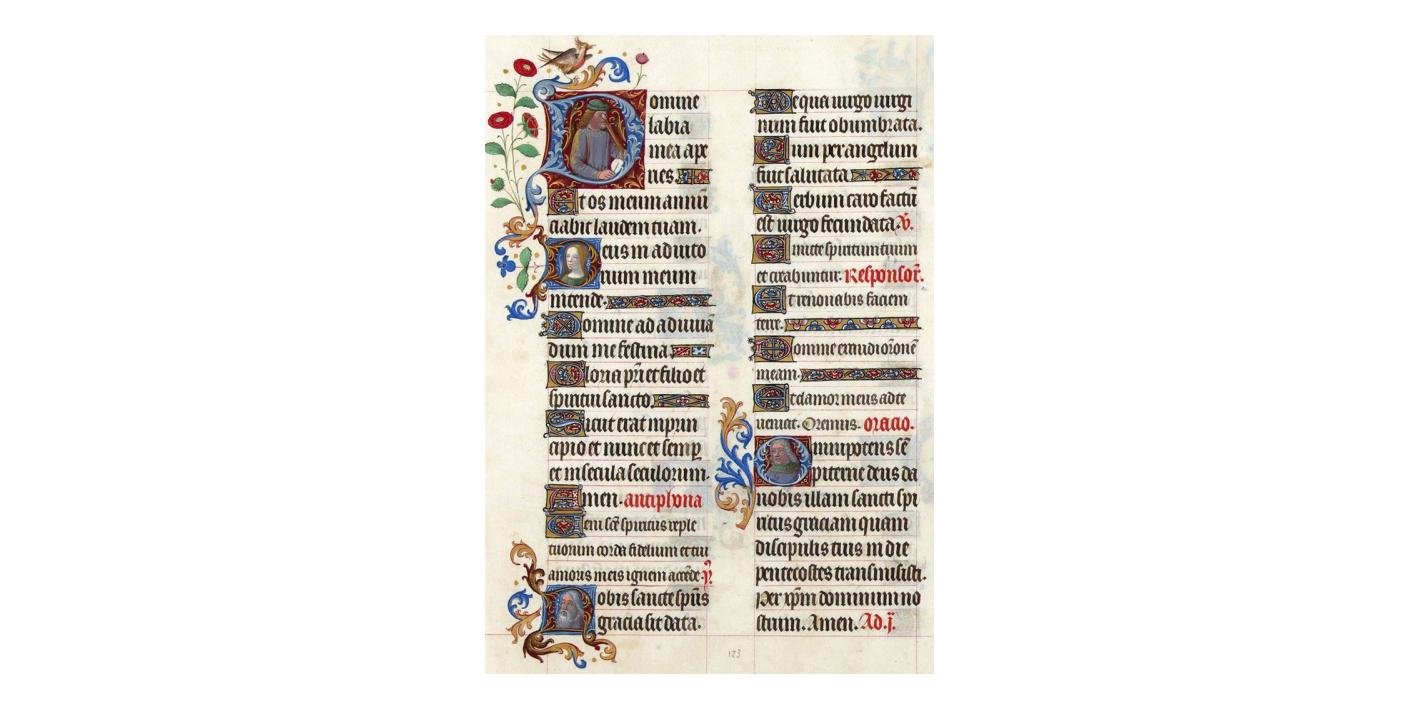 Domine
labia
mea ape
ries.
Et os meum annũ
ciabit laudem tuam.
Deus in adiuto
rium meum
intende.
Domine ad adiuuã
dum me festina.
Gloria pr̃i et filio et
spiritui sancto.
Sicut erat in prin
cipio et nunc et semp
et in secula seculorum.
Amen. antiphona
Veni sc̃e spiritus reple
tuorum corda fidelium et tui
amoris in eis ignem accẽde. ps̃
Nobis sancte sp̃us
gracia sit data.
De qua uirgo uirgi
num fuit obumbrata.
Cum per angelum
fuit salutata
Verbum caro factũ
est uirgo fecundata. V̇.
Emitte spiritum tuum
et creabuntur. Responsor̃.
Et renouabis faciem
terre.
Domine exaudi or̃onẽ
meam.
Et clamor meus ad te
ueniat. Oremus. oracio.
Omnipotens sẽ
piterne deus da
nobis illam sancti spi
ritus graciam quam
discipulis tuis in die
pentecostes transmisisti.
Per xp̃m dominum no
strum. Amen. Ad .j.
123